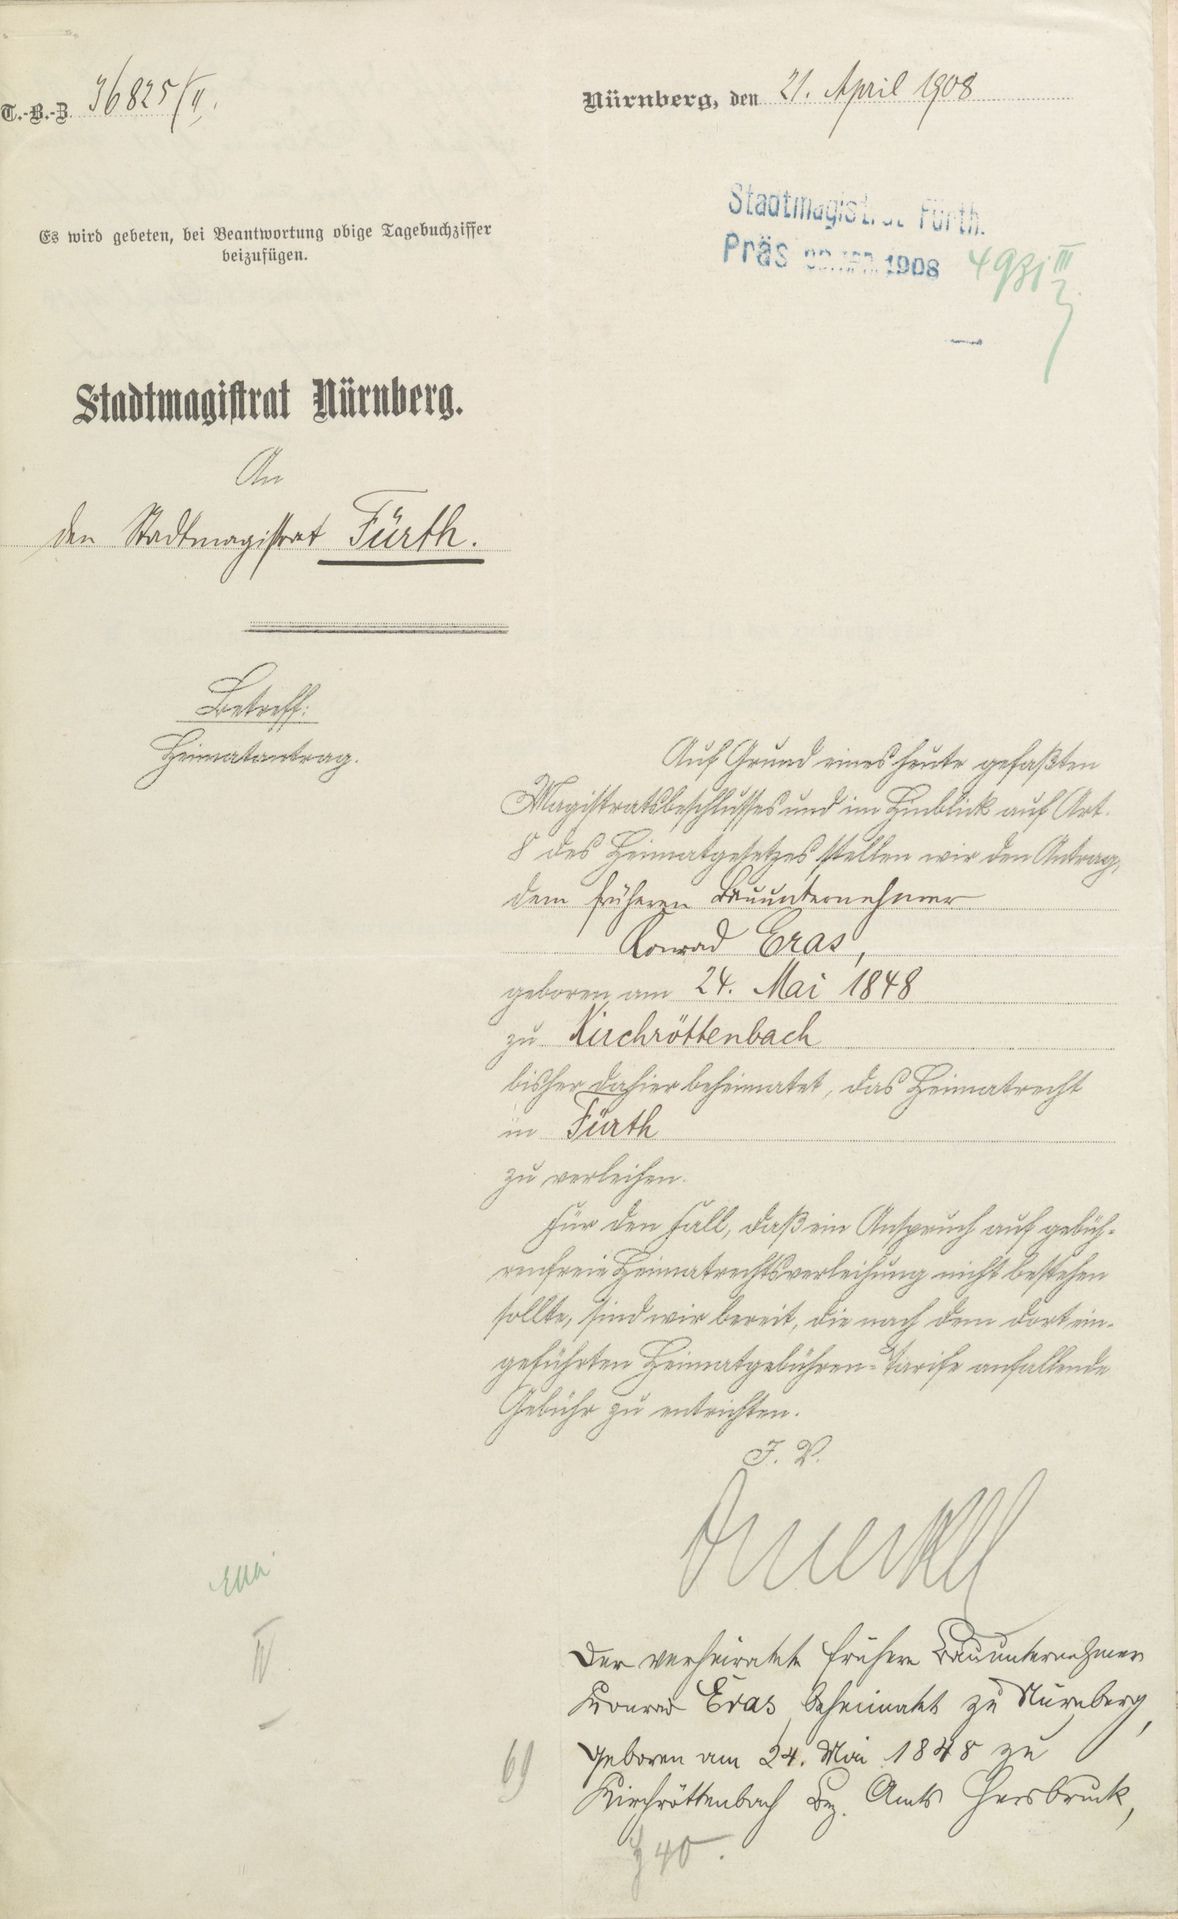 T.-B.-Z. 36825/II.
Nürnberg, den 21. April 1908
Es wird gebeten, bei Beantwortung obige Tagebuchziffer
beizufügen.
Stadtmagistrat Fürth.
Präs 1908
Stadtmagistrat Nürnberg.
An
den Stadtmagistrat Fürth.
Betreff:
Heimatantrag.
Auf Grund eines heute gefaßten
Magistratsbeschlusses und im Hinblick auf Art.
8 des Heimatgesetzes stellen wir den Antrag,
dem früheren Bauunternehmer
Konrad Eras,
geboren am 24. Mai 1848
zu Kirchröttenbach
bisher dahier beheimatet, das Heimatrecht
in Fürth
zu verleihen.
Für den Fall, daß ein Anspruch auf gebüh-
renfreie Heimatrechtsverleihung nicht bestehen
sollte, sind wir bereit, die nach dem dort ein-
geführten Heimatgebühren-Tarife anfallende
Gebühr zu entrichten.
J. V.
IV
Der verheiratete frühere Bauunternehmer
Konrad Eras, beheimatet zu Nürnberg,
geboren am 24. Mai 1848 zu
Kirchröttenbach Bez. Amts Hersbruck,
69
40.